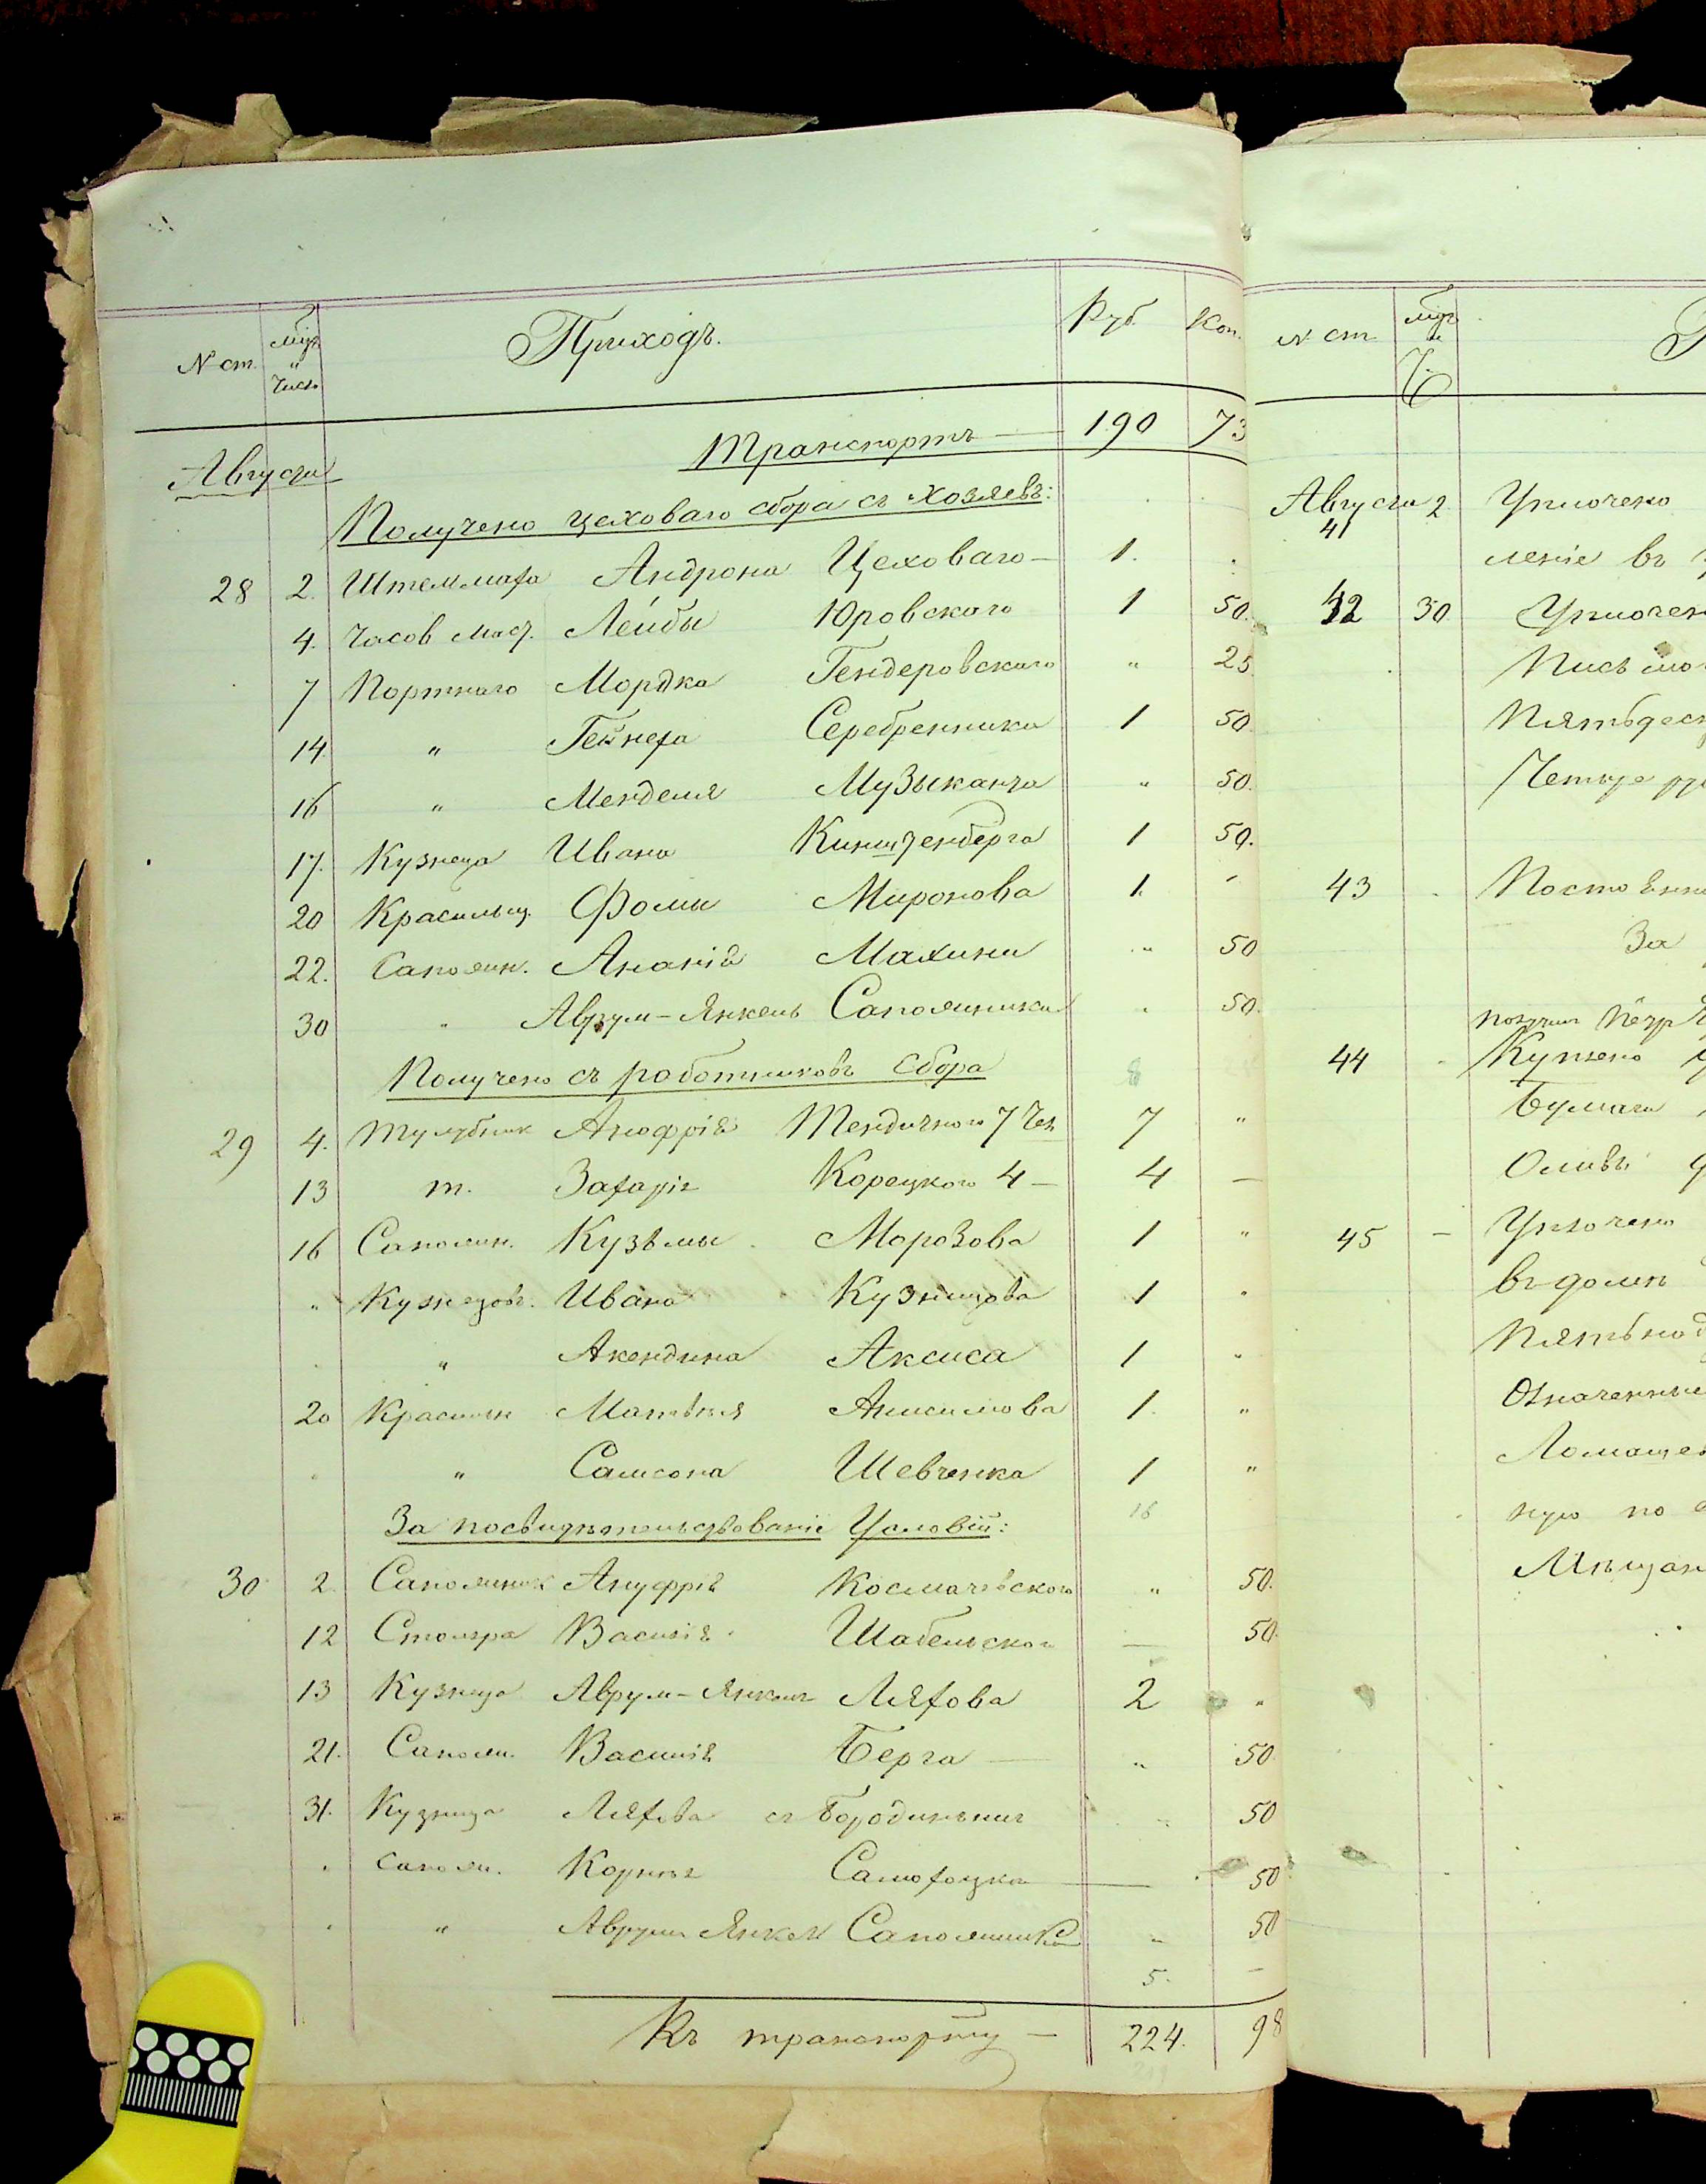 N ст. Мѣс. и Число Приходъ. Руб. Коп.
Транспортъ — 190 73
Августа
Получено цеховаго сбора съ хозяевъ:
28 2. Андрона Цеховаго — 1.
4. Часов. маст. Лейбы Юровского 1 50.
7 Портнаго Мордка Гендеровскаго " 25
14. " Серебренника 1 50.
16 " Менделя Музыканта " 50.
17. Кузнеца Ивана 1 50.
20 Красильщ. Фомы Миронова 1. "
22. Сапожн. Ананія Махини " 50
30 " Аврум-Янкель Сапожника " 50.
Получено съ работниковъ сбора 8
29 4. Анофрія 7 чел. 7 "
13 т. Захарія Корецкого 4 — 4 —
16 Сапожн. Кузьмы Морозова 1 "
" Кузнецовъ. Ивана Кузнецова 1 "
" " Аксиса 1 "
20 Красильн. Матвѣя Анисимова 1. "
" " Самсона Шевченка 1 "
За посвидѣтельствованіе Условій: 16
30 2. Сапожник Ануфрія Космачевского " 50.
12 Столяра Василія Шабельског — 50.
13 Кузнеца Аврум-Янкеля Ляхова 2 "
21. Сапожн. Василія Берга — " 50.
31. Кузнеца Ляхова съ " 50
" Сапожн. Корнѣя — 50
" " Аврум Янкеля Сапожника " 50
5. —
Къ транспорту — 224. 98
N ст Мѣс. и Ч.
Августа 2. Уплочено
41
леніе въ
42 30 Уплочен
Письмо
Пятьдеся
Четыре ру
43
За
получил Пётр
44 Куплено
бумаги
Оливы
45 — Уплочено
въ домъ
Пятьнад
Означенные
ную по
Мѣщан